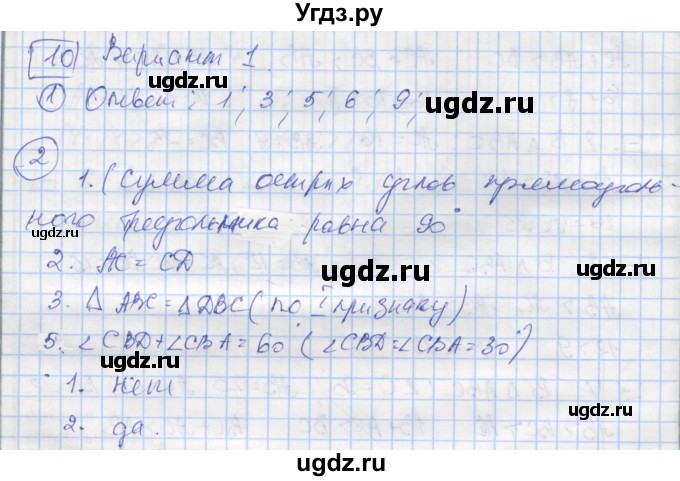 Угдз.ру
10 Вариант 1.
① Ответ: 1; 3; 5; 6; 9;
② 
1. (Сумма острых углов прямоуголь-
ного треугольника равна 90°
2. AC = CD
3. △ ABC = △DBC (по I признаку)
5. ∠CBD + ∠CBA = 60° (∠CBD = ∠CBA = 30°)
1. Нет
2. да.
ugdz.ru
ugdz.ru
ugdz.ru
ugdz.ru
ugdz.ru
ugdz.ru
ugdz.ru
ugdz.ru
ugdz.ru
ugdz.ru
ugdz.ru